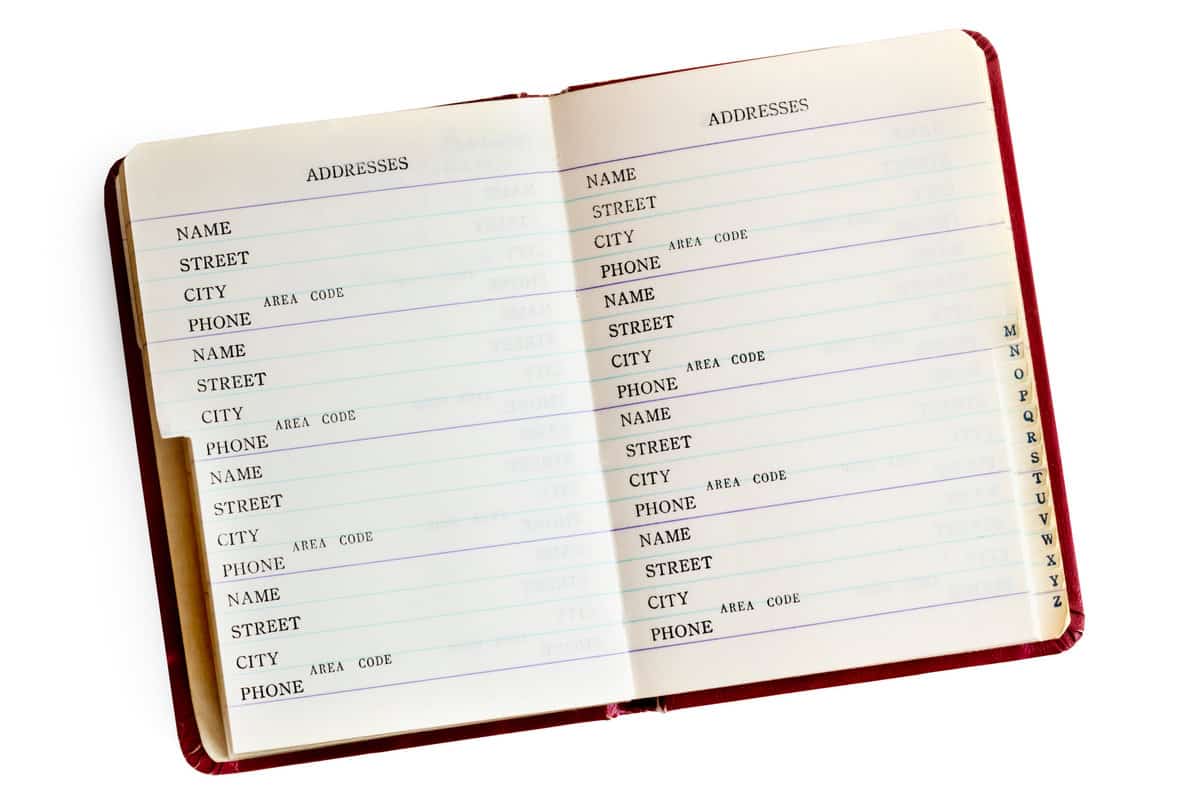 ADDRESSES
NAME
STREET
CITY
AREA CODE
PHONE
NAME
STREET
CITY
AREA CODE
PHONE
NAME
STREET
CITY
AREA CODE
PHONE
NAME
STREET
CITY
AREA CODE
PHONE
ADDRESSES
NAME
STREET
CITY
AREA CODE
PHONE
NAME
STREET
CITY
AREA CODE
PHONE
NAME
STREET
CITY
AREA CODE
PHONE
NAME
STREET
CITY
AREA CODE
PHONE
M
N
O
P
Q
R
S
T
U
V
W
X
Y
Z